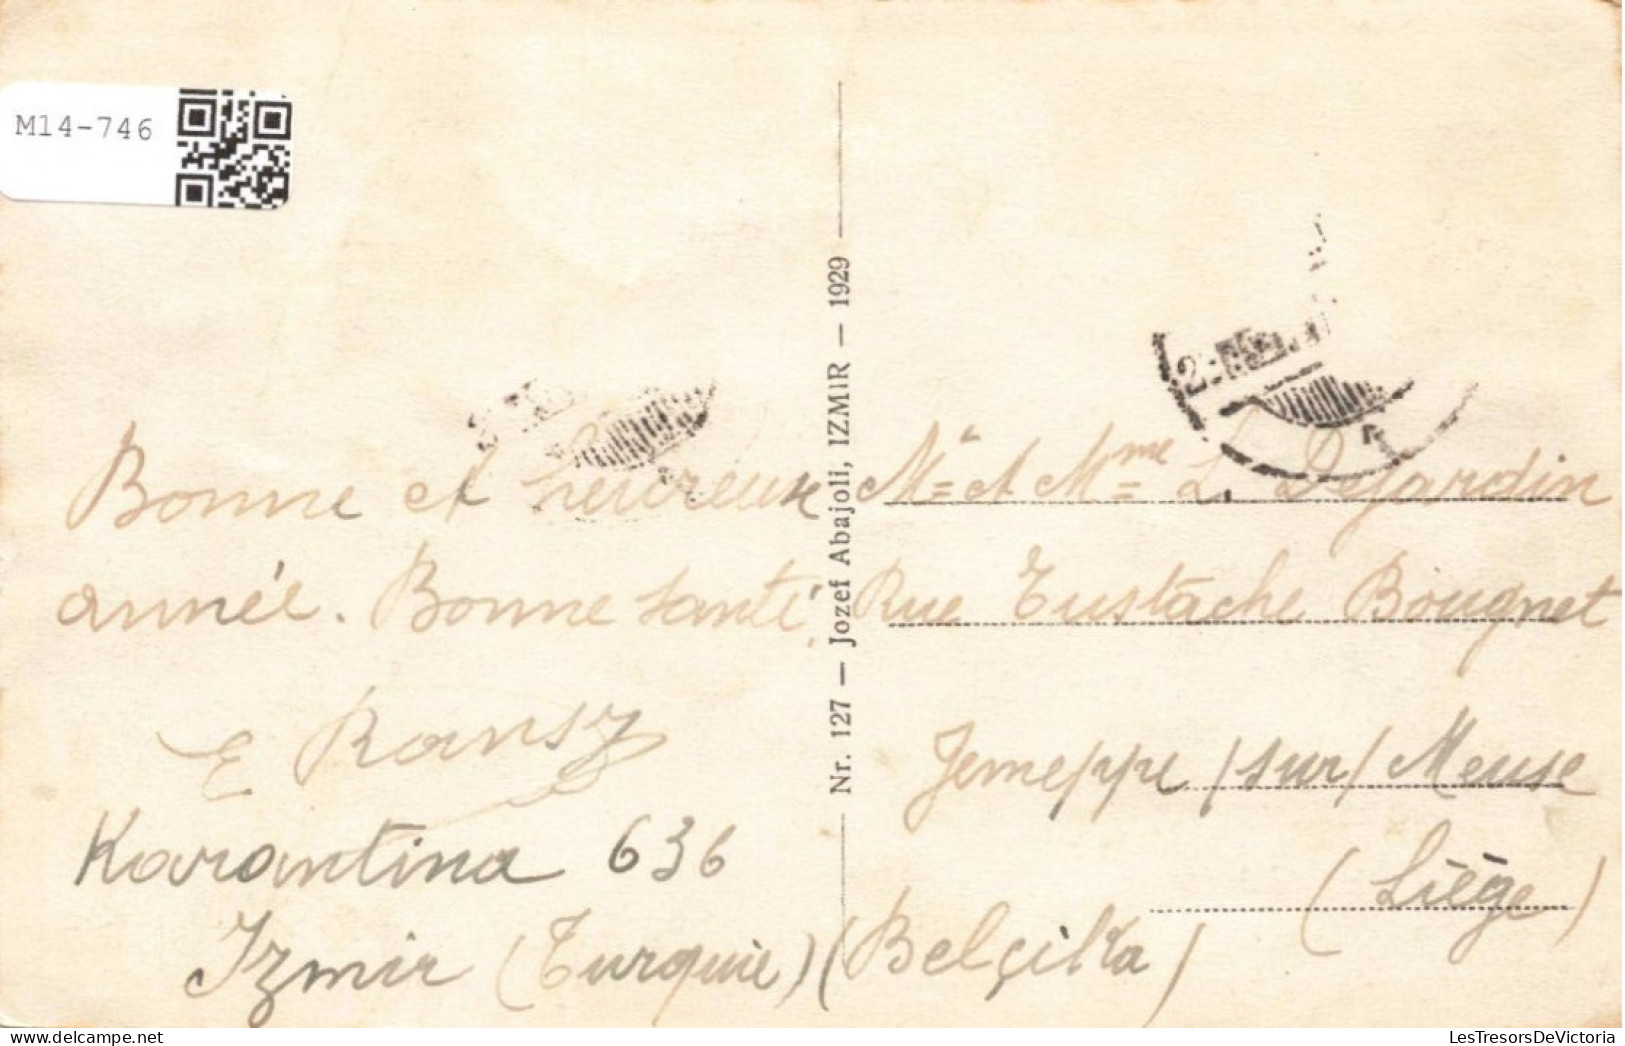 M14-746
Nr. 127 — Jozef Abajoli, IZMIR — 1929
Bonne et heureuse
année. Bonne santé.
E Ransy
Karantina 636
Izmir (Turquie)
Mr et Mme L Dejardin
Rue Eustache Bougnet
Jemeppe / sur / Meuse
(Liège)
(Belçika)
delcampe.net
LesTresorsDeVictoria